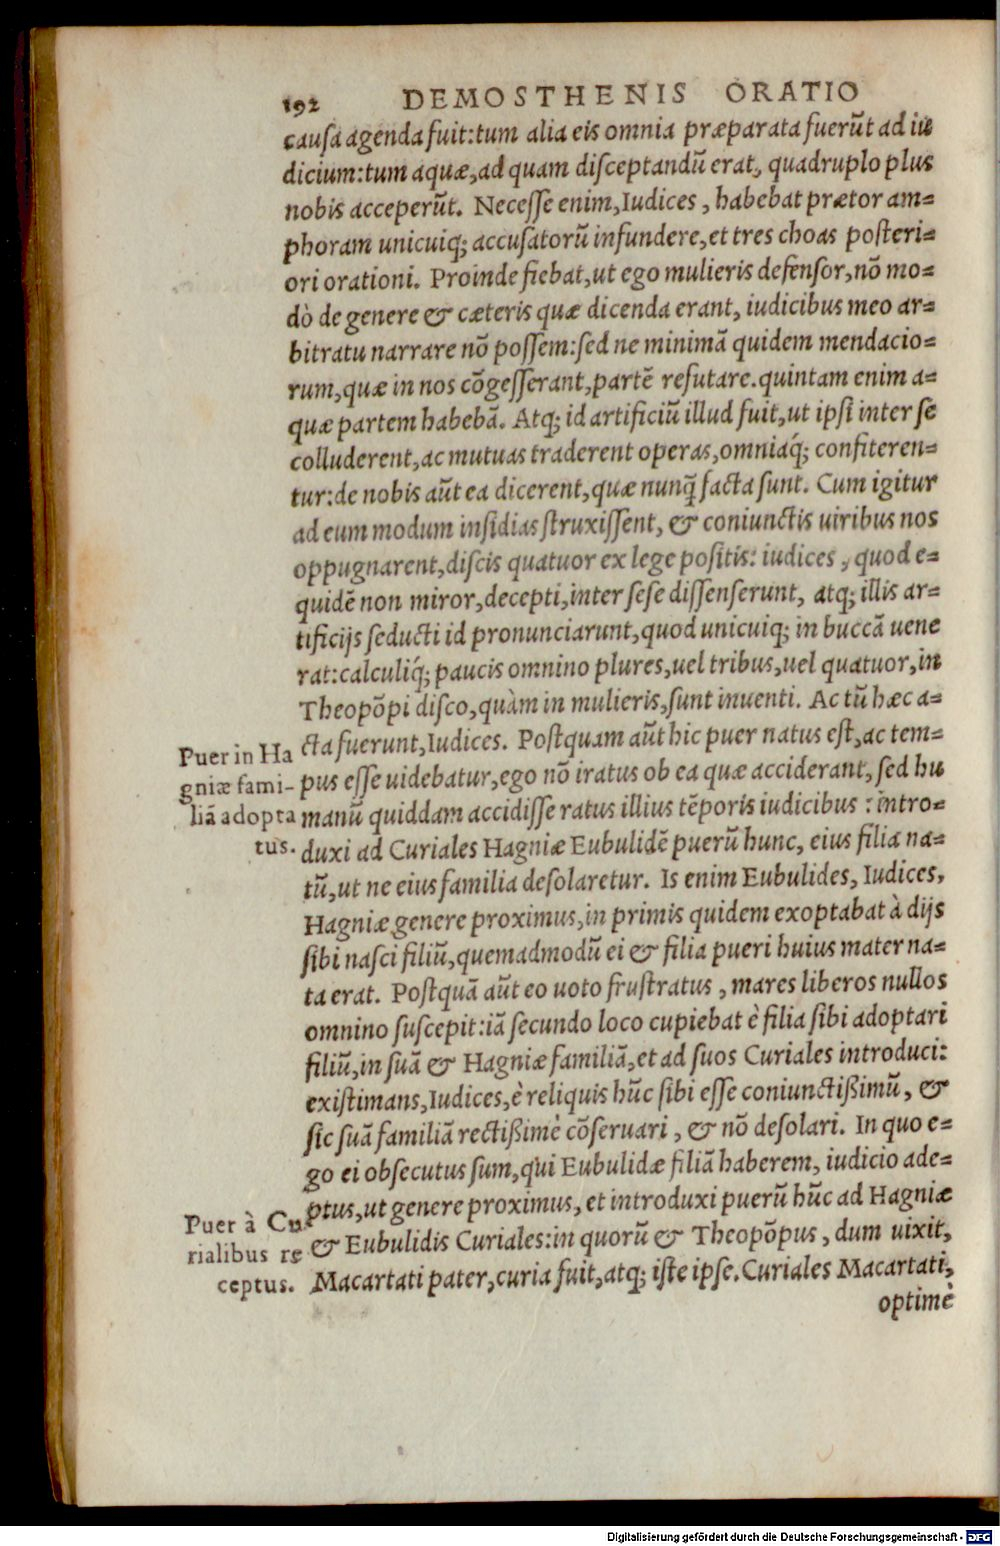 192 DEMOSTHENIS ORATIO
causa agenda fuit:tum alia eis omnia præparata fuerūt ad iu
dicium:tum aquæ,ad quam disceptandū erat, quadruplo plus
nobis acceperūt. Necesse enim,Iudices, habebat prætor am=
phoram unicuiq; accusatorū infundere,et tres choas posteri=
ori orationi. Proinde fiebat,ut ego mulieris defensor,nō mo=
dò de genere & cæteris quæ dicenda erant, iudicibus meo ar=
bitratu narrare nō possem:sed ne minimā quidem mendacio=
rum,quæ in nos cōgesserant,partē refutare.quintam enim a=
quæ partem habebā. Atq; id artificiū illud fuit,ut ipsi inter se
colluderent,ac mutuas traderent operas,omniaq́; confiteren=
tur:de nobis aūt ea dicerent,quæ nunq̄ facta sunt. Cum igitur
ad eum modum insidias struxissent, & coniunctis uiribus nos
oppugnarent,discis quatuor ex lege positis: iudices, quod e=
quidē non miror,decepti,inter sese dissenserunt, atq; illis ar=
tificijs seducti id pronunciarunt,quod unicuiq; in buccā uene
rat:calculiq́; paucis omnino plures,uel tribus,uel quatuor,in
Theopōpi disco,quàm in mulieris,sunt inuenti. Ac tū hæc a=
cta fuerunt,Iudices. Postquam aūt hic puer natus est,ac tem=
pus esse uidebatur,ego nō iratus ob ea quæ acciderant, sed hu
manū quiddam accidisse ratus illius tēporis iudicibus: intro=
duxi ad Curiales Hagniæ Eubulidē puerū hunc, eius filia na=
tū,ut ne eius familia desolaretur. Is enim Eubulides, Iudices,
Hagniæ genere proximus,in primis quidem exoptabat à dijs
sibi nasci filiū,quemadmodū ei & filia pueri huius mater na=
ta erat. Postquā aūt eo uoto frustratus, mares liberos nullos
omnino suscepit:iā secundo loco cupiebat è filia sibi adoptari
filiū,in suā & Hagniæ familiā,et ad suos Curiales introduci:
existimans,Iudices,è reliquis hūc sibi esse coniunctißimū, &
sic suā familiā rectißimè cōseruari, & nō desolari. In quo e=
go ei obsecutus sum,qui Eubulidæ filiā haberem, iudicio ade=
ptus,ut genere proximus, et introduxi puerū hūc ad Hagniæ
& Eubulidis Curiales:in quorū & Theopōpus, dum uixit,
Macartati pater,curia fuit,atq; iste ipse.Curiales Macartati,
optimè
Puer in Ha
gniæ fami-
liā adopta
tus.
Puer à Cu
rialibus re
ceptus.
Digitalisierung gefördert durch die Deutsche Forschungsgemeinschaft - DFG